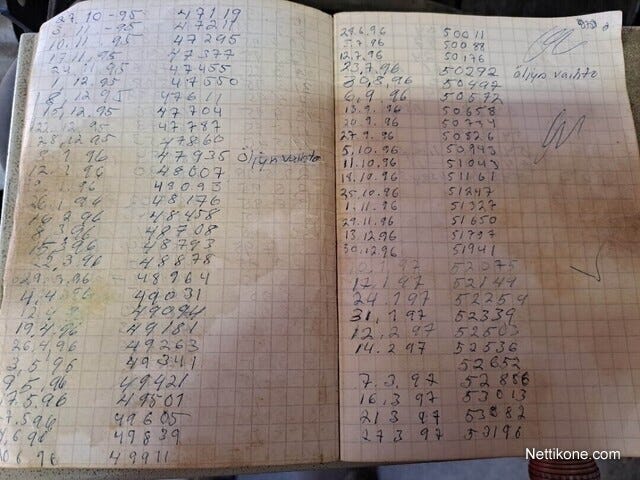 27.10-95 47119
3.11-95 47217
10.11 95 47295
17.11.95 47377
24 -95 47455
1.12.95 47550
8.12.95 47611
15.12.95 47704
47787
28.12.95 47860
47935 Öljyn vaihto
48007
1.96 48093
26.1.96 48176
48458
8.3.96 48708
15.3.96 48793
48878
29.3.96 - 48964
4.4.96 49031
12.4.96 49094
19.4.96 49181
26.4.96 49263
3.5.96 49341
9.5.96 49421
17.5.96 49501
49605
.6.96 49839
6.96 49911
28.6.96 50011
5.7.96 50088
12.7.96 50176
50292 Öljyn vaihto
50497
6.9.96 50572
13.9.96 50658
20.9.96
27.9.96 50826
5.10.96 50943
11.10.96 51043
18.10.96 51161
25.10.96 51247
1.11.96 51327
29.11.96 51650
13.12.96 51797
30.12.96 51941
52075
17.1.97 52149
24.1.97 52259
31.1.97 52339
12.2.97 52503
14.2.97 52536
52652
7.3.97 52886
16.3.97 53013
21.3.97
27.3.97
Nettikone.com